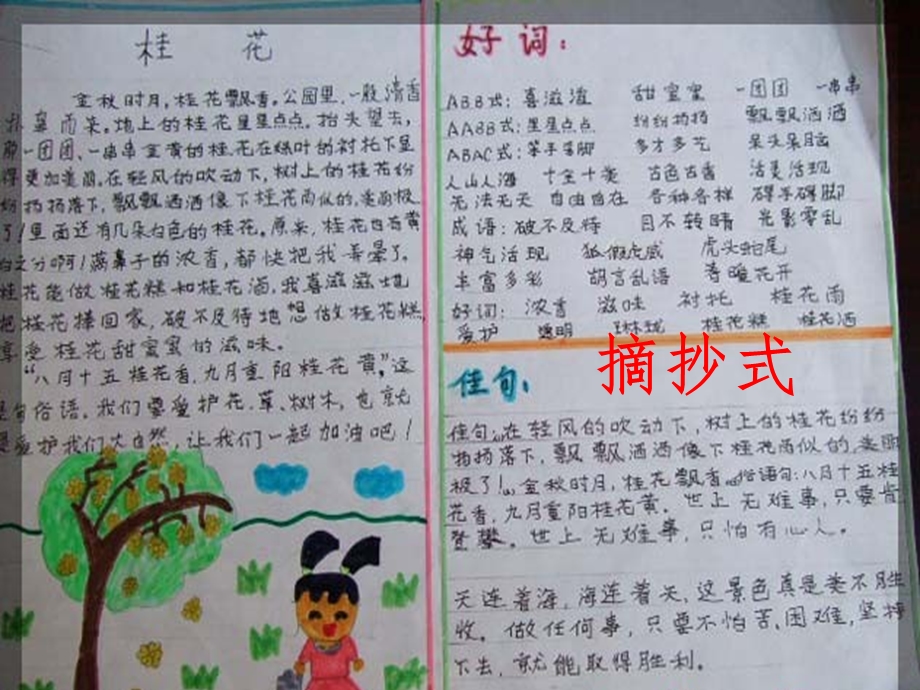 桂 花
金秋时月,桂花飘香。公园里,一股清香
扑鼻而来。地上的桂花星星点点。抬头望去,
那一团团、一串串金黄的桂花在绿叶的衬托下显
得更加美丽。在轻风的吹动下,树上的桂花纷
纷扬扬落下,飘飘洒洒像下桂花雨似的,美丽极
了!里面还有几朵白色的桂花。原来,桂花也有黄
白之分啊!满鼻子的浓香,都快把我弄晕了。
桂花能做桂花糕和桂花酒,我喜滋滋地
把桂花捧回家,破不及待地想做桂花糕,
享受桂花甜蜜蜜的滋味。
“八月十五桂花香,九月重阳桂花黄”,这
是句俗语。我们要爱护花、草、树木,也就
是爱护我们大自然,让我们一起加油吧!
好词:
ABB式:喜滋滋 甜蜜蜜 一团团 一串串
AABB式:星星点点 纷纷扬扬 飘飘洒洒
ABAC式:笨手笨脚 多才多艺 呆头呆脑
人山人海 十全十美 古色古香 活灵活现
无法无天 自由自在 各种各样 碍手碍脚
成语:破不及待 目不转睛 光影零乱
神气活现 狐假虎威 虎头蛇尾
丰富多彩 胡言乱语 春暖花开
好词:浓香 滋味 衬托 桂花雨
爱护 透明 玲珑 桂花糕 桂花酒
摘抄式
佳句:
佳句:在轻风的吹动下,树上的桂花纷纷
扬扬落下,飘飘洒洒像下桂花雨似的,美丽
极了!金秋时月,桂花飘香。俗语句:八月十五桂
花香,九月重阳桂花黄。世上无难事,只要肯
登攀。世上无难事,只怕有心人。
天连着海,海连着天,这景色真是美不胜
收。做任何事,只要不怕苦、困难,坚持
下去,就能取得胜利。